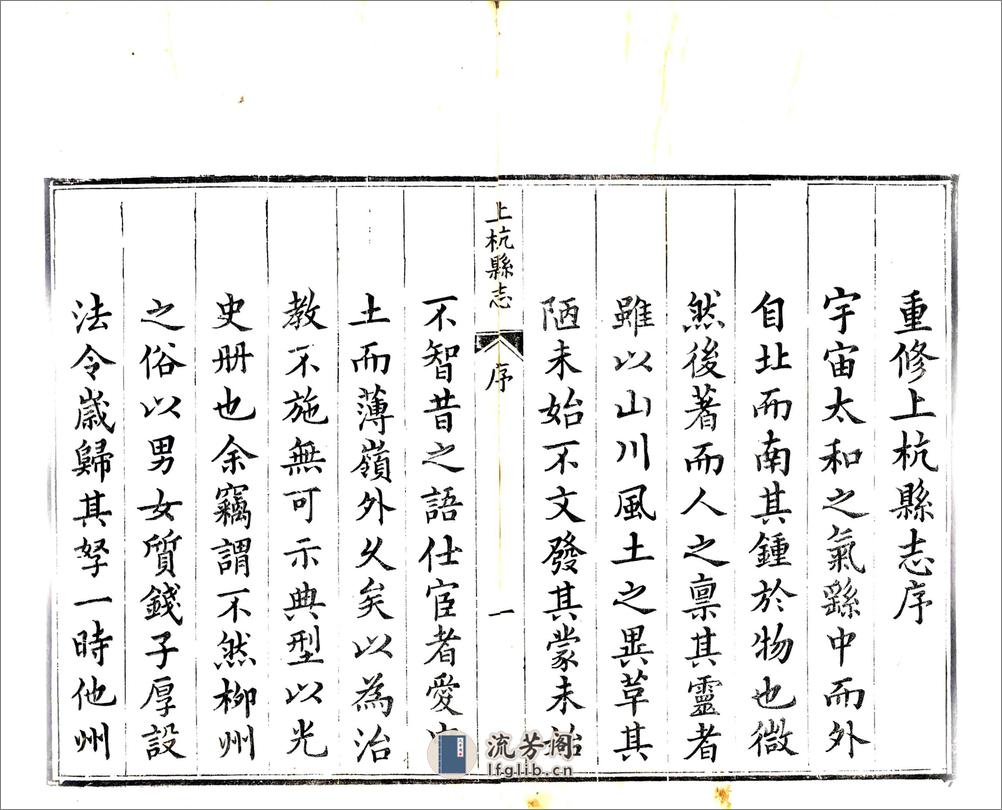 重修上杭縣志序
宇宙太和之氣繇中而外
自北而南其鍾於物也微
然後著而人之禀其靈者
雖以山川風土之異草其
陋未始不文發其蒙未始
上杭縣志
序
一
不智昔之語仕宦者愛
土而薄嶺外乆矣以為治
教不施無可示典型以光
史册也余竊謂不然柳州
之俗以男女質錢子厚設
法令歲歸其孥一時他州
流芳阁
lfglib.cn